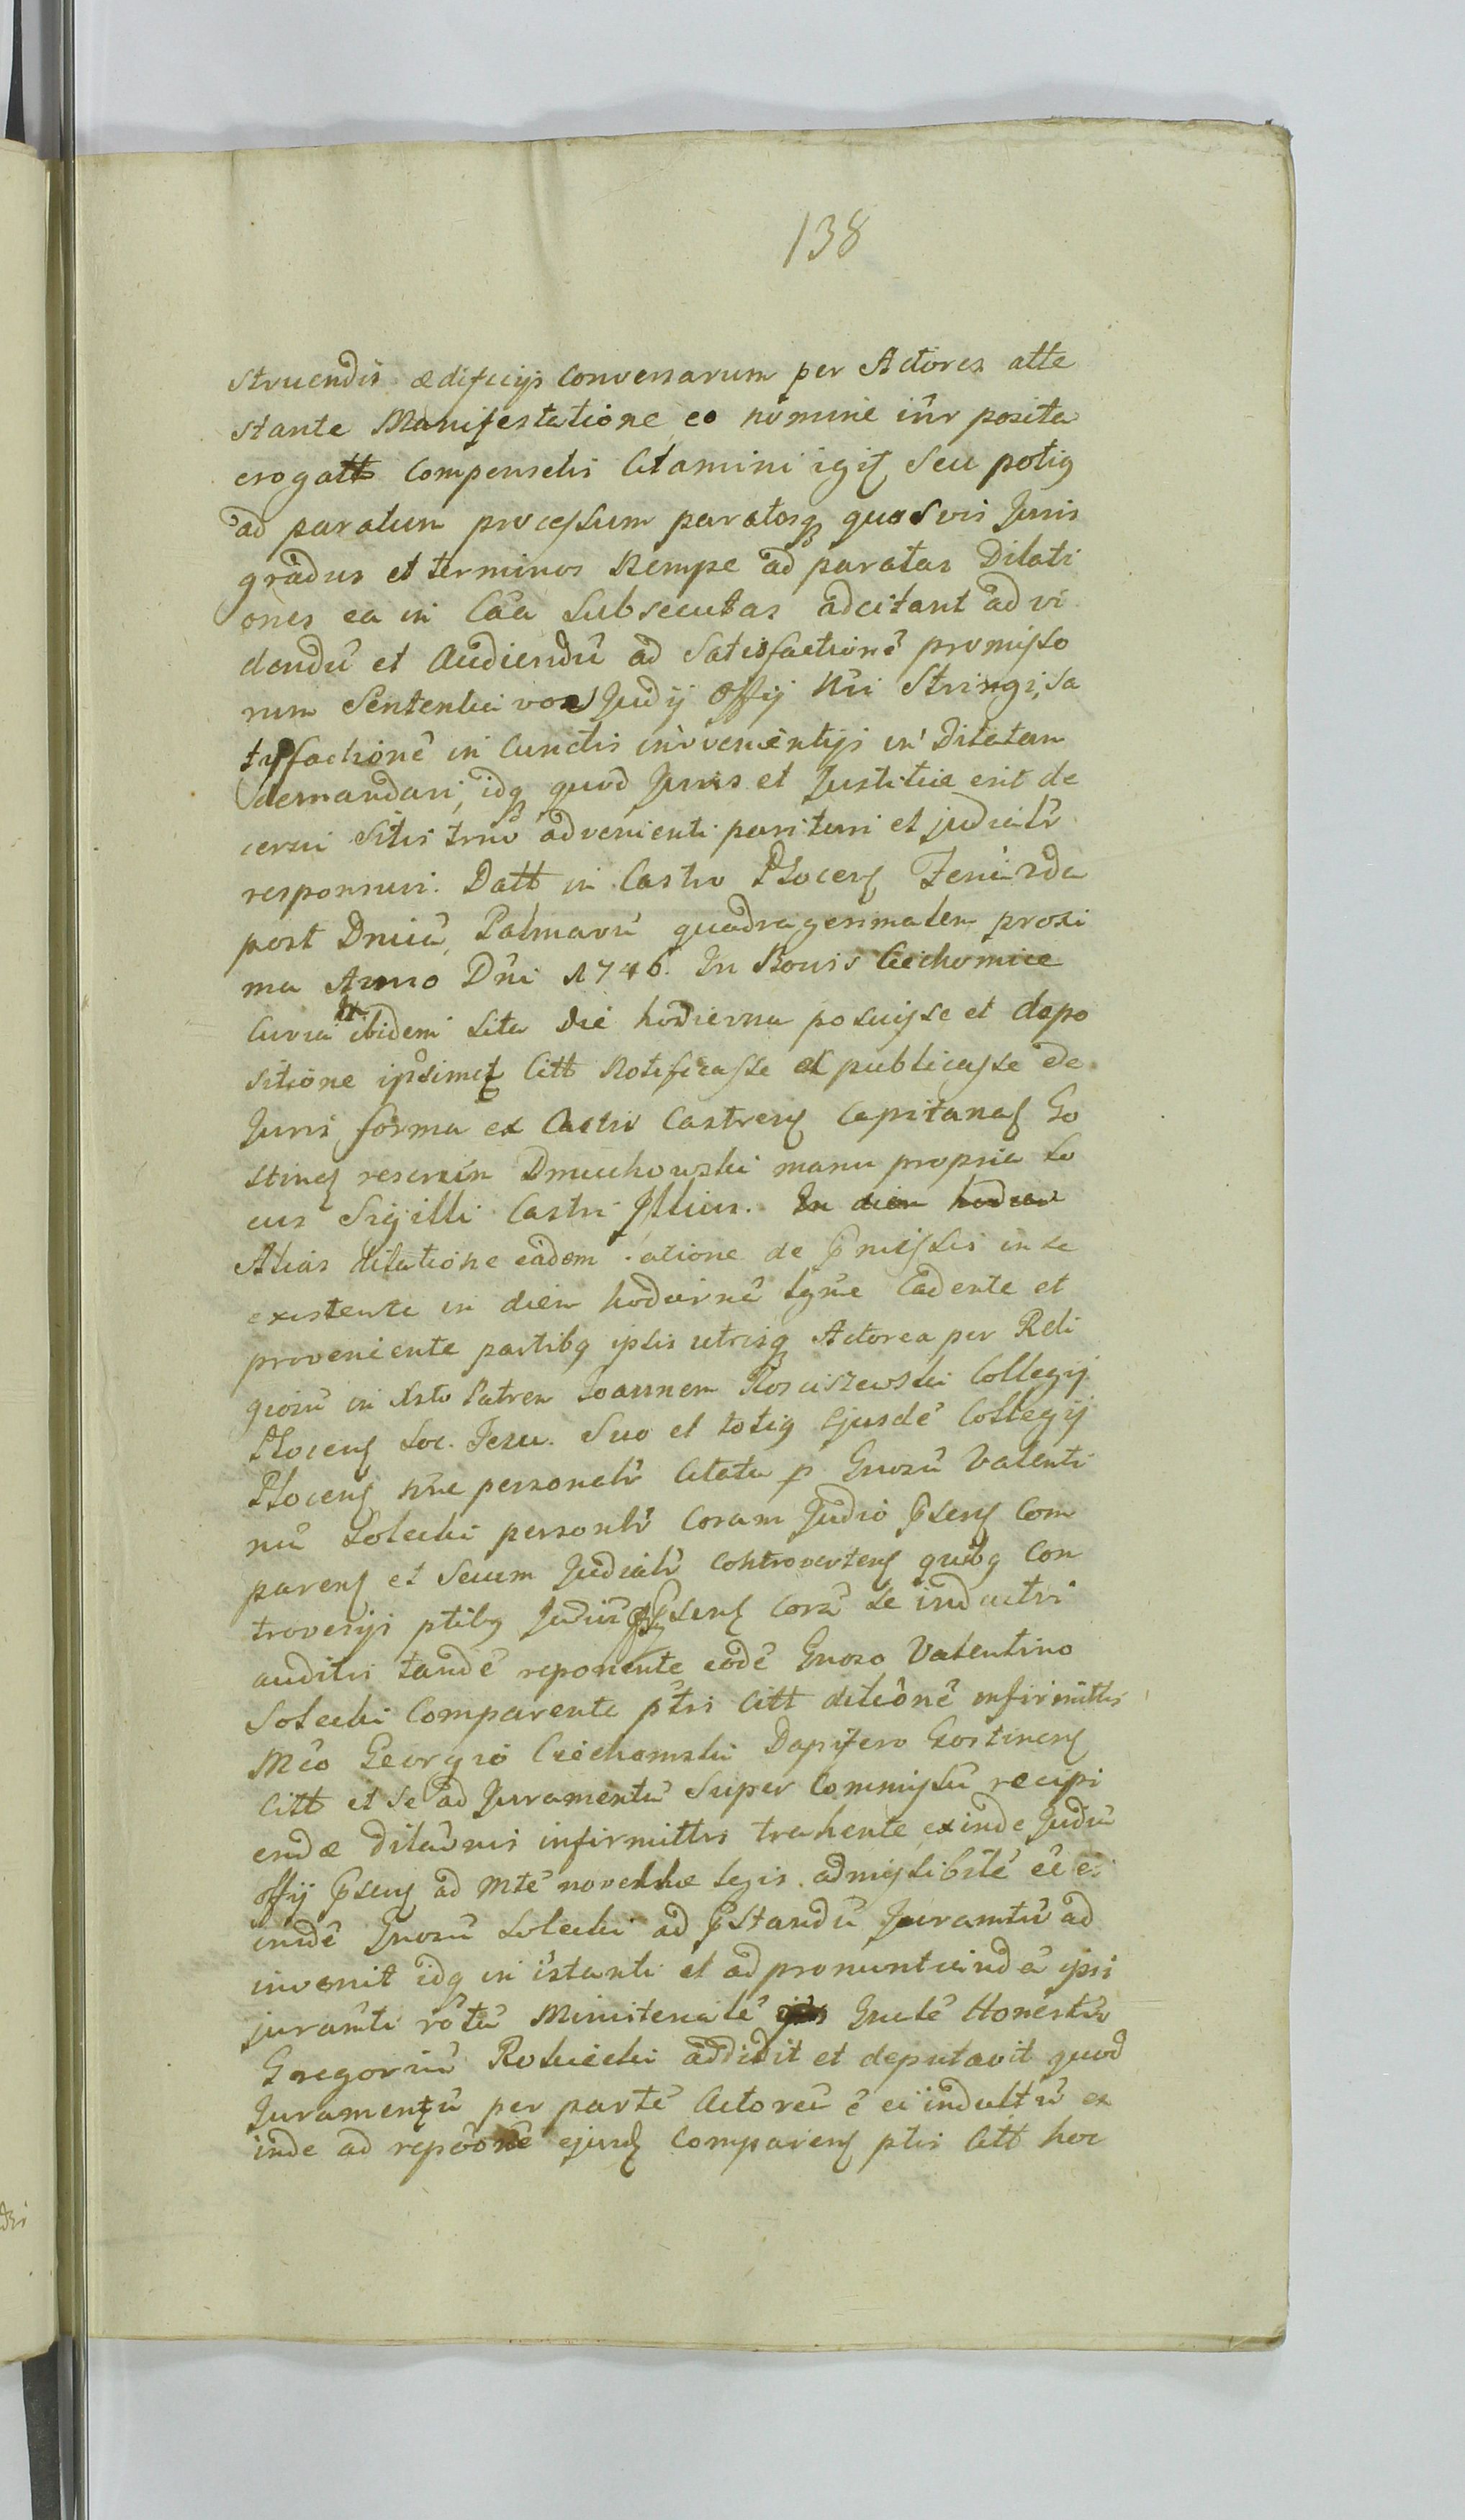 138
struendis ædificijs conversarum per Actores atte
stante Manifestatione eo nomine inr posita
erogatt compenselis Citamini igit seu potig
ad paratum processum paratosq quasvis Juris
gradus et terminos Nempe ad paratas Dilati
ones ea in Caa subsecutas adcitant ad vi
dendū et Audiendū ad satisfactionē promisso
rum Sententia vos Judij Offij Nri Stringi, sa
tisfactionē in cunctis invenientijs in Dilatam
demandari, idq quod Juris et Justitiæ erit de
cerni Sitis trno advenienti parituri et judialr
responsuri. Datt in Castro Plocen Feria 2da
post Dnicā Palmarū quadragesimalem proxi
ma Anno Dni 1746. In Bonis Ciechomice
Curia ibidem sita die hodierna posuisse et depo
sitione ipsimet Citt Notificasse et publicasse de
Juris forma ex Actis Castren Capitanea Go
stinen rescrim Dmuchowski manu propria lo
cus Sigilli Castri Illius. In diem hodier
Alias dilatione eadem ratione de pmissis in se
existente in diem hodiernū lgme Cadente et
proveniente partibg ipsis utrisq Actorea per Reli
giosū in Xsto Patrem Joannem Rosciszewski Collegij
Plocen Soc. Jesu. Suo et totig Ejusdē Collegij
Plocen nne personalr Citata p Gnosū Valenti
nū Solecki personlr Coram Judio psen Com
paren et Secum Judialr Controverten quibg Con
troversijs ptibg Judiū psen Corā se inductri
auditis tandē reponente eodē Gnoso Valentino
Solecki Comparente ptis Citt dilonē infirmittis
Mco Georgio Ciechomski Dapifero Gostinen
Citt et se ad Juramentū super Commissū recipi
endæ Dilaonis infirmittis trahente exinde Judiū
offij psen ad Mtē novellæ legis admissibilē ee
indē Gnosū Solecki ad pstandū Juramtū ad
invenit idq in istanti et ad pronuntiandā ipsi
juramti rotā Ministerialē Gnlē Honestū
Gregoriū Rokicki addidit et deputavit quod
Juramentū per partē Actoreā ē ei indultū ex
inde ad repōonē ejusd Comparen ptis Citt hoc